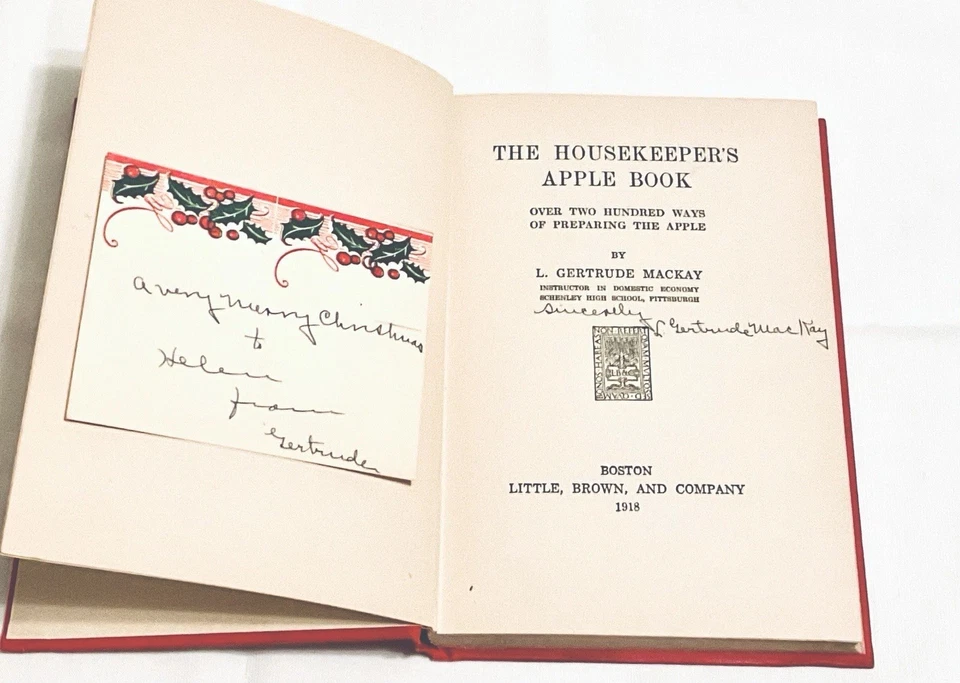 a very Merry Christmas
to
Helen
from
Gertrude
THE HOUSEKEEPER'S
APPLE BOOK
OVER TWO HUNDRED WAYS
OF PREPARING THE APPLE
BY
L. GERTRUDE MACKAY
INSTRUCTOR IN DOMESTIC ECONOMY
SCHENLEY HIGH SCHOOL, PITTSBURGH
Sincerely
L. Gertrude MacKay
NON REFERT QUAM MULTOS SED QUAM BONOS HABEAS
LB&C
BOSTON
LITTLE, BROWN, AND COMPANY
1918